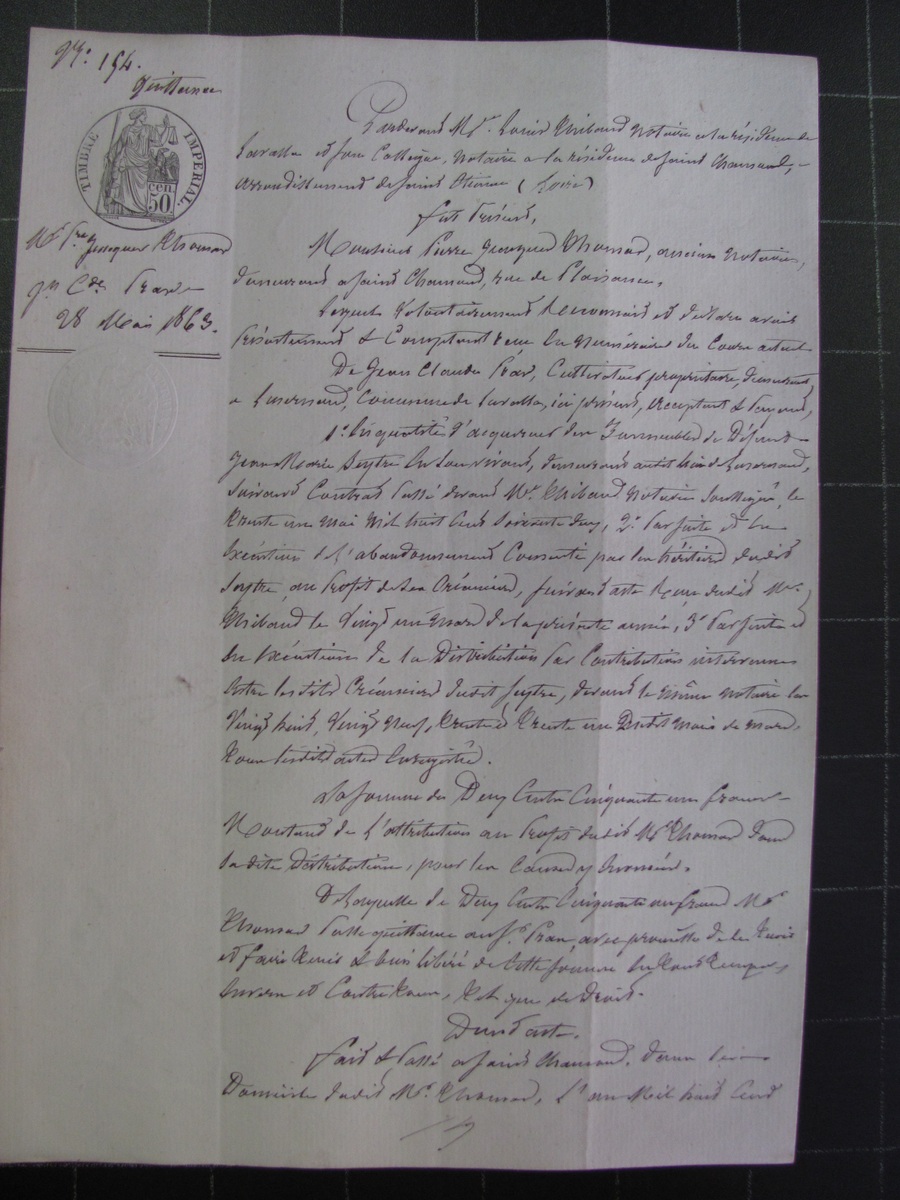 N.º 154.
Quittance
TIMBRE IMPERIAL.
50 cen
Mr Pre Jacques Thomas
Jn Cde Pras
28 Mai 1863.
Pardevant Me. Louis Thibaud Notaire à la résidence de
Lavalla et son Collègue, Notaire à la résidence de Saint Chamond,
arrondissement de Saint Etienne (Loire)
fut Présent,
Monsieur Pierre Jacques Thomas, ancien Notaire,
demeurant à Saint Chamond, rue de Plaisance.
Lequel Volontairement reconnait et déclare avoir
Présentement & Comptant reçu en Numéraire du Cours actuel
De Jean Claude Pras, Cultivateur propriétaire, demeurant
à Commune de Lavalla, ici présent, acceptant & payant,
1º. En qualité d'acquéreur des Immeubles de Défunt
Jean Marie Seytre en son vivant, demeurant audit lieu de
Suivant Contrat Passé devant Me. Thibaud Notaire Soussigné, le
trente un mai mil huit cent soixante deux, 2º Par suite et en
Exécution de l'abandonnement Consenti par les héritiers dudit
Seytre, au Profit de ses Créanciers, suivant acte Reçu dudit Me.
Thibaud le Vingt un mars de la présente année, 3º Par suite et
en Exécution de la Distribution par Contribution intervenue
entre lesdits Créanciers dudit Seytre, devant le même notaire les
Vingt huit, Vingt Neuf, trente & trente un Dudit Mois de mars.
tous lesdits actes Enregistrés.
La Somme de Deux Cents Cinquante un francs
Montant de l'attribution au Profit dudit Mr Thomas dans
la dite Distribution, pour les Causes y énoncées.
De laquelle de Deux Cents Cinquante un francs Mr
Thomas Passe quittance au Sr. Pras, avec promesse de le tenir
et faire tenir & bien libéré de cette somme en tous temps,
Envers et Contre tous, tel que de Droit.
Dont acte.
fait & Passé à Saint Chamond, dans le
Domicile dudit Mr. Thomas, L'an Mil huit Cent